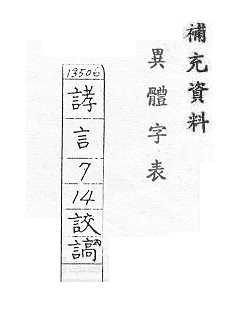 補充資料
異體字表
13506
誟
言
7
14
詨
謞